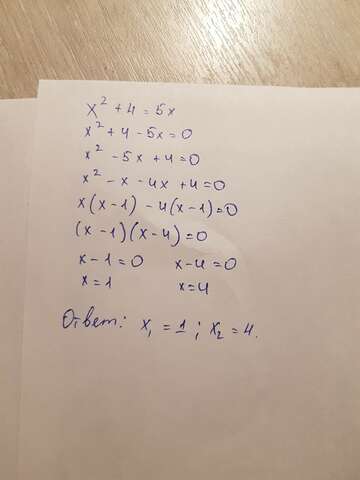 x² + 4 = 5x
x² + 4 - 5x = 0
x² - 5x + 4 = 0
x² - x - 4x + 4 = 0
x(x - 1) - 4(x - 1) = 0
(x - 1)(x - 4) = 0
x - 1 = 0 x - 4 = 0
x = 1 x = 4
Ответ: x₁ = 1; x₂ = 4.